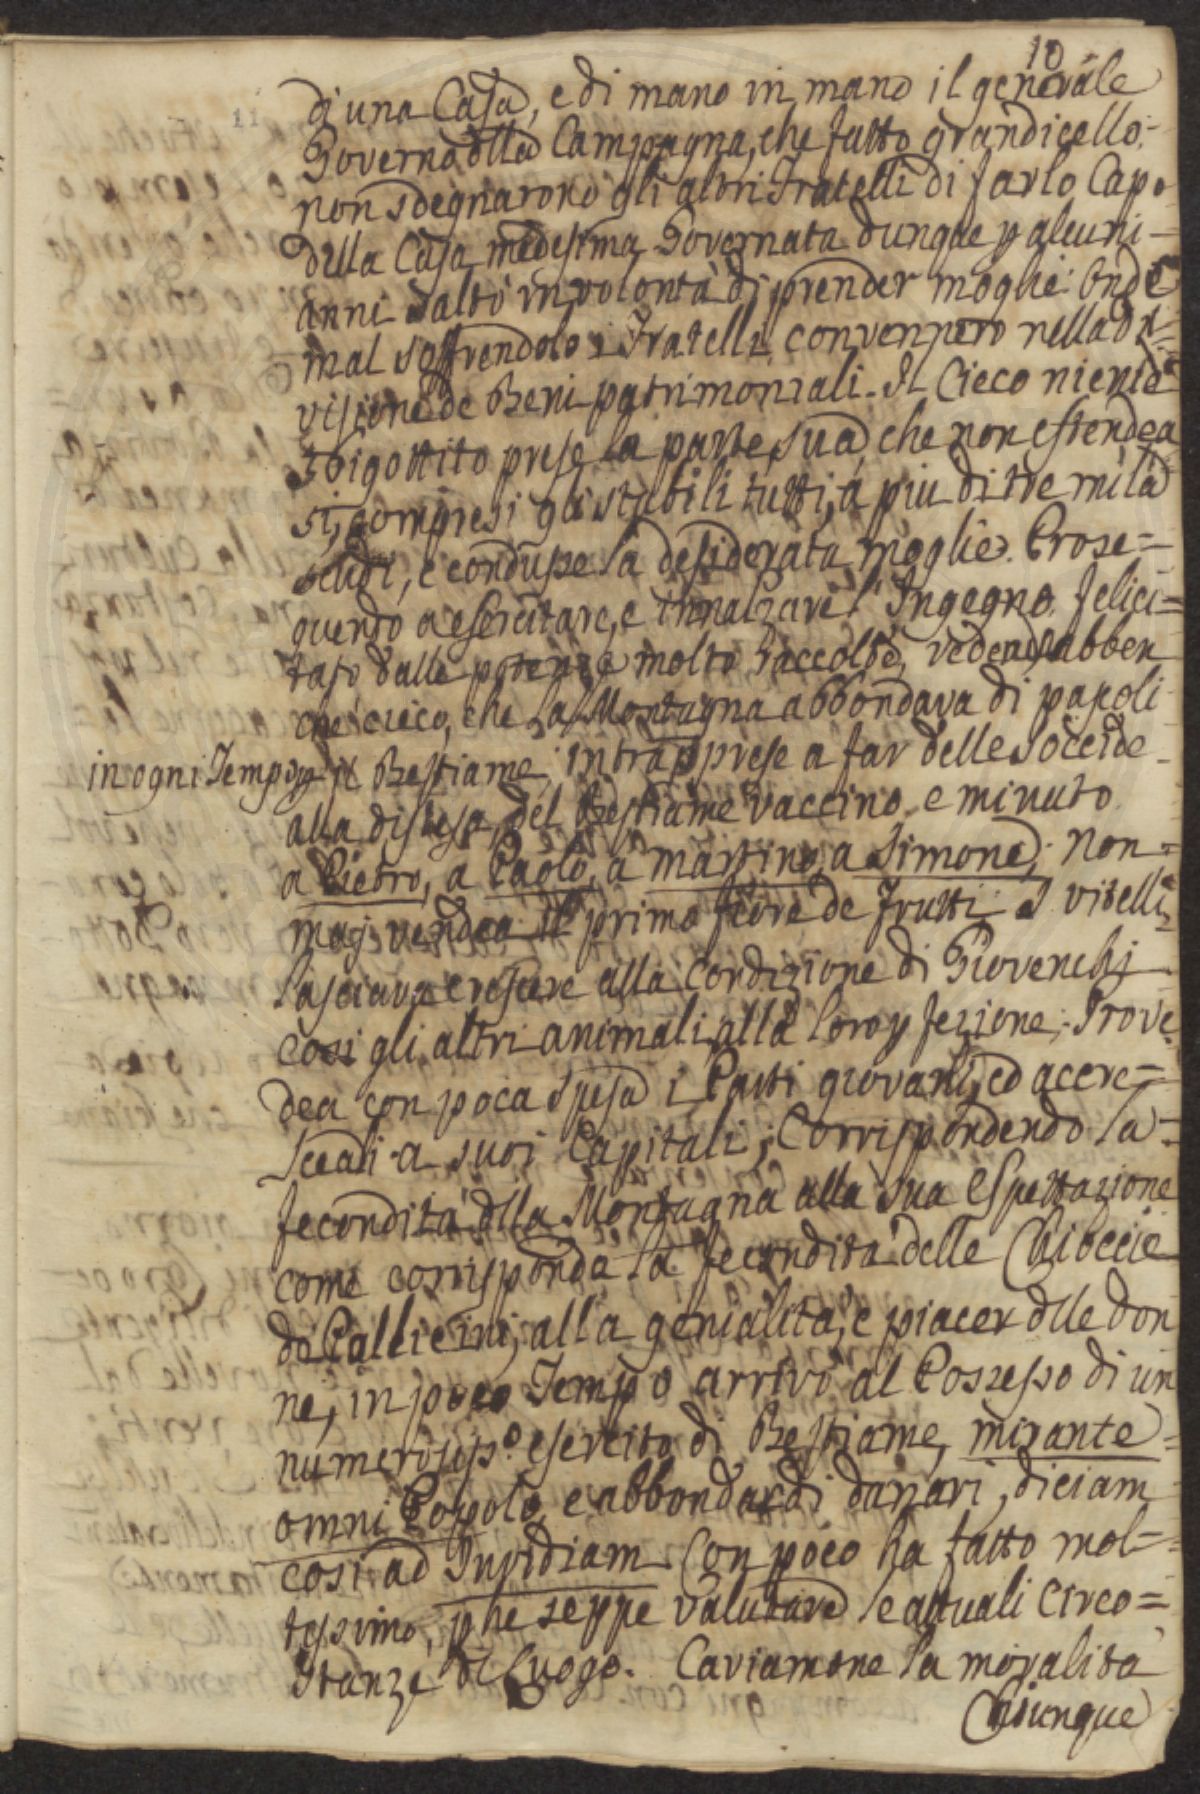 10
11
d'una Casa, e di mano in mano il generale
Governo dlla Campagna, che fatto grandicello
non sdegnarono gli altri Fratelli di farlo Capo
della Casa medesima. Governata dunque p alcuni
anni saltò in volontà di prender moglie. Onde
mal soffrendolo i Fratelli, convennero nella di=
visione de Beni patrimoniali. Il Cieco niente
sbigottito prese la parte sua, che non estendea
si, compresi gli stabili tutti, a piu di tre mila
scudi, e condusse la desiderata moglie. Prose=
guendo a esercitare, e innalzare l'Ingegno, felici=
tato dalle molto Raccolte, vedendo abben
che cieco, che la Montagna abbondava di pascoli
in ogni Tempo p il Bestiame, intrapprese a far delle Soccide
alla distesa del Bestiame vaccino e minuto
a Pietro, a Paolo, a Martino, a Simone; Non=
mai vendea il primo fiore de Frutti. I vitelli
lasciava crescere alla condizione di Giovenchi
così gli altri animali alla loro pfezione; Prove
dea con poca spesa i Parti giovani, ed accre=
sceali a suoi Capitali; Corrispondendo la=
fecondità dlla Montagna alla sua Espettazione
come corrisponde la fecondità delle Chioccie
de Pallicini, alla genialità, e piacer dlle don
ne, in poco Tempo arrivò al Possesso di un
numerosiss.o esercito di Bestiame, mirante
omni Popolo, e abbondar di danari, diciam
così ad Invidiam. Con poco ha fatto mol=
tissimo, pche seppe valutare le attuali circo=
stanze di Luogo. Caviamone la moralità
Chiunque